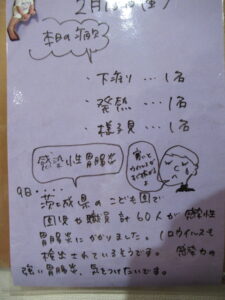 2月1
本日の病欠
・下痢り … 1名
・発熱 … 1名
・様子見 … 1名
感染性胃腸炎
寒いと
ウイルスも
9日・・・・
茨城県のこども園で
園児や職員 計60人が 感染性
胃腸炎にかかりました。(ロウイルスも
検出されているそうです。 感染力の
強い胃腸炎、気をつけたいです。